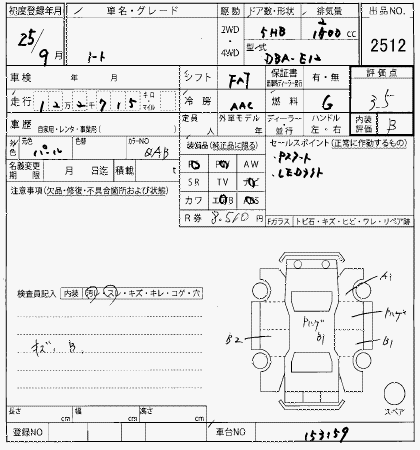 初度登録年月 車名・グレード 駆動 ドア数・形状 排気量 出品NO.
25/9月 ノート 2WD 5HB 1200cc 2512
4WD 型式 DBA-E12
車検 年 月 シフト FAT 保証書 有・無 評価点
走行 12万2千715 キロ・マイル 冷房 AAC 燃料 G 3.5
車歴 自家用・レンタ・事業用( ) 定員 人 外車モデル 年 ディーラー・並行 ハンドル 左・右 内装評価 B
外色 元色 パール 色替 カラーNO QAB 装備品(純正品に限る) セールスポイント(正常に作動するもの)
PS PW AW ・Pスタート
名義変更期限 月 日迄 積載 t SR TV ナビ ・LEDライト
注意事項(欠品・修復・不具合箇所および状態) カワ エアB ABS
R券 8,510円 Fガラス(トビ石・キズ・ヒビ・ワレ・リペア跡
検査員記入 内装 汚レ・スレ・キズ・キレ・コゲ・穴
キズ、B
A1
B2
B1
B1
スペア
長さ cm 幅 cm 高さ cm
登録NO 車台NO 153159